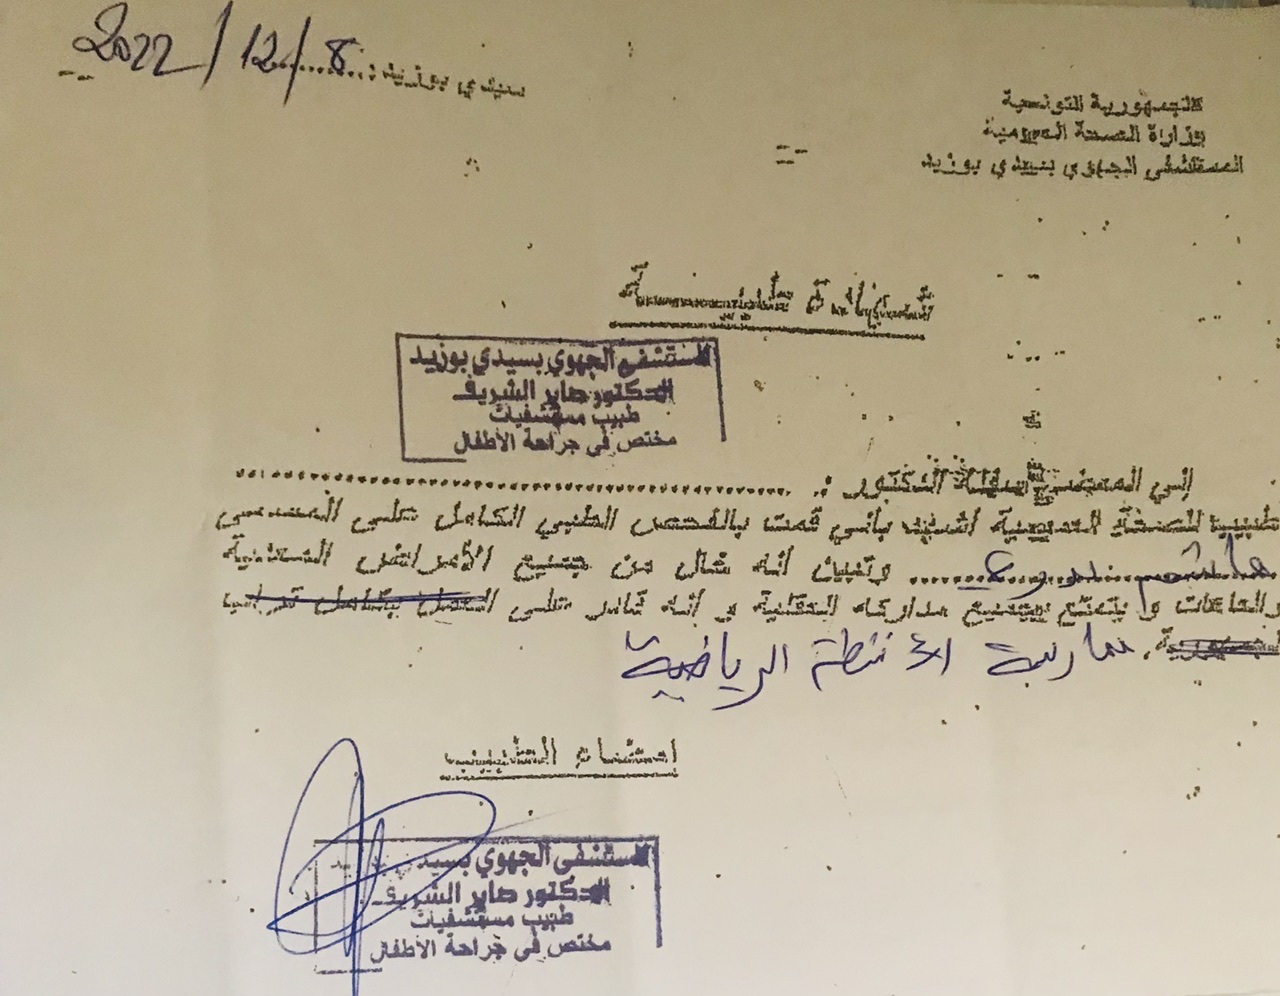 سيدي بوزيد : 8/12/2022
الجمهورية التونسية
وزارة الصحة العمومية
المستشفى الجهوي بسيدي بوزيد
شهادة طبية
المستشفى الجهوي بسيدي بوزيد
الدكتور صابر الشريف
طبيب مستشفيات
مختص في جراحة الأطفال
إني الممضي أسفله الدكتور :
طبيب الصحة العمومية اشهد باني قمت بالفحص الطبي الكامل على المسمى
وتبين أنه خال من جميع الأمراض المعدية
والعاهات و يتمتع بجميع مداركه العقلية و أنه قادر على العمل بكامل تراب
الجمهورية. ممارسة الأنشطة الرياضية
إمضاء الطبيب
المستشفى الجهوي بسيدي
الدكتور صابر الشريف
طبيب مستشفيات
مختص في جراحة الأطفال